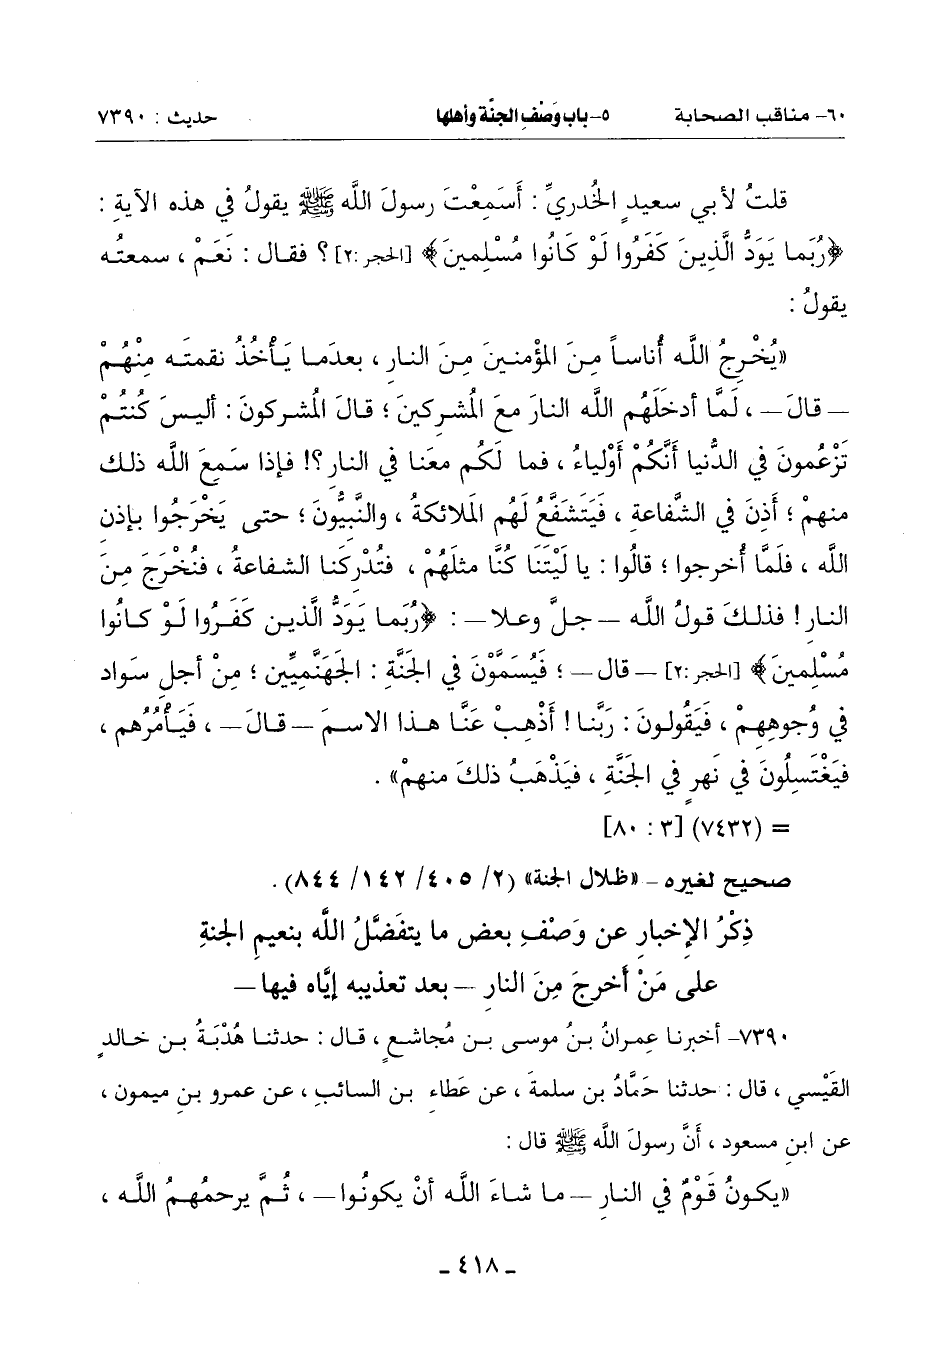 ٦٠- مناقب الصحابة ٥- باب وَصْفِ الجنَّة وأهلها حديث : ٧٣٩٠
قلتُ لأبي سعيدٍ الخُدريِّ : أَسَمِعْتَ رسولَ اللَّه ﷺ يقولُ في هذه الآية :
﴿رُبَما يَوَدُّ الَّذِينَ كَفَرُوا لَوْ كَانُوا مُسْلِمينَ﴾ [الحجر :٢] ؟ فقال : نَعَمْ ، سمعتُه
يقولُ :
«يُخْرِجُ اللَّه أُناساً مِنَ المؤْمنينَ مِنَ النارِ ، بعدَما يَأْخُذُ نقمتَه مِنْهُمْ
– قالَ – ، لَمَّا أدخَلَهُم اللَّه النارَ معَ المُشركينَ ؛ قالَ المُشركونَ : أليسَ كُنتُمْ
تَزْعُمونَ في الدُّنيا أَنَّكُمْ أَوْلياءُ ، فما لَكُم معَنا في النارِ ؟! فإذا سَمِعَ اللَّه ذلكَ
منهمْ ؛ أَذِنَ في الشَّفاعةِ ، فَيَتَشَفَّعُ لَهُم المَلائكةُ ، والنَّبيُّونَ ؛ حتى يَخْرَجُوا بإذنِ
اللَّه ، فلَمَّا أُخرجوا ؛ قالُوا : يا لَيْتَنَا كُنَّا مثلَهُمْ ، فتُدْركَنا الشفاعةُ ، فنُخْرَجَ مِنَ
النارِ ! فذلكَ قولُ اللَّه – جلَّ وعلا – : ﴿رُبَما يَوَدُّ الَّذين كَفَروا لَوْ كانُوا
مُسْلِمِينَ﴾ [الحجر :٢] – قال – ؛ فَيُسَمَّوْنَ في الجَنَّة : الجَهَنَّمِيِّين ؛ مِنْ أجلِ سَواد
في وُجوهِهِمْ ، فَيَقولونَ : رَبَّنا ! أَذْهِبْ عَنَّا هذا الاسمَ – قالَ – ، فَيَأْمُرُهم ،
فيَغْتَسِلُونَ في نَهرٍ في الجَنَّةِ ، فيَذْهَبُ ذلكَ منهمْ» .
= (٧٤٣٢) [٣ : ٨٠]
صحيح لغيره – «ظلال الجنة» (٢/ ٤٠٥/ ١٤٢/ ٨٤٤) .
ذِكْرُ الإخبارِ عن وَصْفِ بعض ما يتفَضَّلُ اللَّه بنعيمِ الجنةِ
على مَنْ أَخرجَ مِنَ النارِ – بعد تعذيبه إيَّاه فيها –
٧٣٩٠- أخبرنا عِمرانُ بنُ موسى بن مُجاشعٍ ، قال : حدثنا هُدْبَةُ بن خالدٍ
القَيْسي ، قال : حدثنا حَمَّادُ بن سلمةَ ، عن عَطاءِ بن السائبِ ، عن عمرو بنِ ميمون ،
عن ابنِ مسعود ، أَنَّ رسولَ اللَّه ﷺ قال :
«يكونُ قَوْمٌ في النارِ – ما شاءَ اللَّه أنْ يكونُوا – ، ثُمَّ يرحمُهُمُ اللَّه ،
ـ ٤١٨ ـ